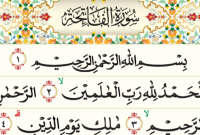 سُورَةُ الْفَاتِحَةِ
بِسْمِ اللَّهِ الرَّحْمَٰنِ الرَّحِيمِ ١
لْحَمْدُ لِلَّهِ رَبِّ الْعَٰلَمِينَ ٢ الرَّحْمَٰنِ
لرَّحِيمِ ٣ مَٰلِكِ يَوْمِ الدِّينِ ٤